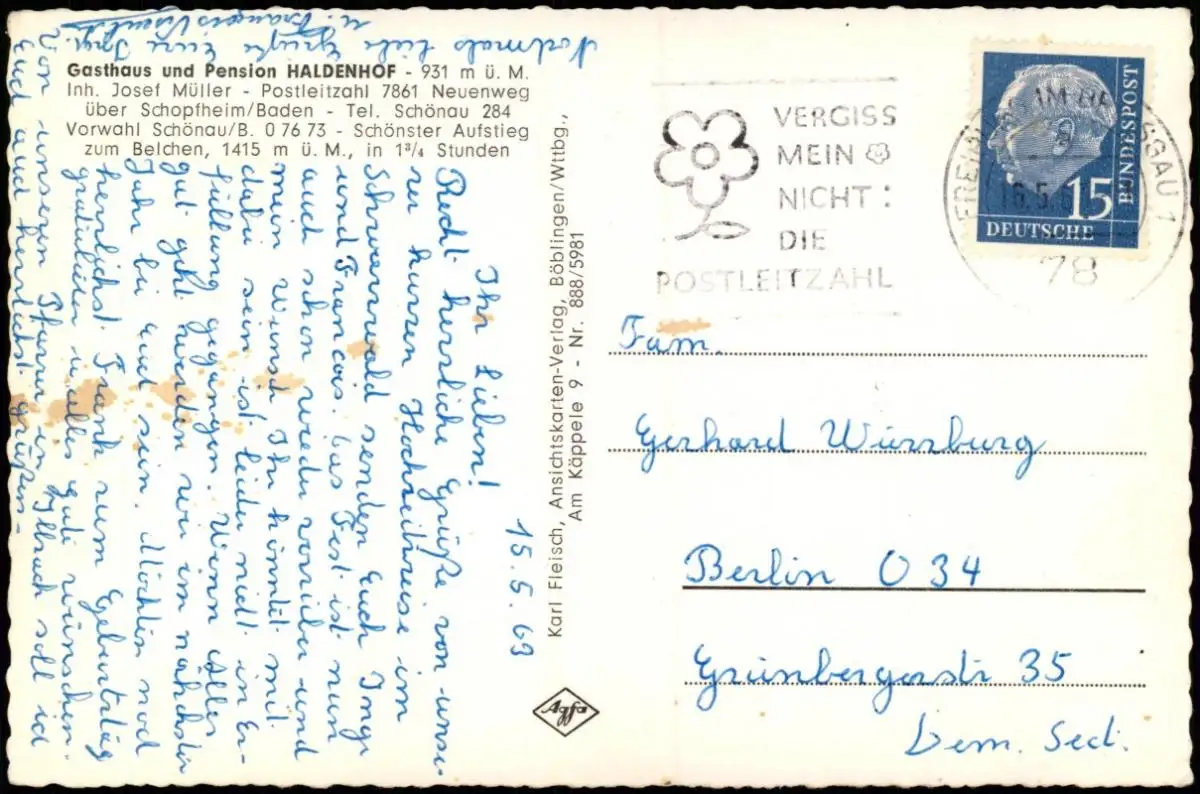 Gasthaus und Pension HALDENHOF - 931 m ü. M.
Inh. Josef Müller - Postleitzahl 7861 Neuenweg
über Schopfheim/Baden - Tel. Schönau 284
Vorwahl Schönau/B. 0 76 73 - Schönster Aufstieg
zum Belchen, 1415 m ü. M., in 1³/₄ Stunden
15.5.63
Ihr Lieben!
Recht herzliche Grüße von unse-
rer kurzen Hochzeitsreise im
Schwarzwald senden Euch Inge
und Francois. Das Fest ist nun
auch schon wieder vorüber und
mein Wunsch Ihr könntet mit
dabei sein ist leider nicht in Er-
füllung gegangen. Wenn Alles
gut geht werden wir im nächsten
Jahr bei Euch sein. Möchten noch
herzlichst Frank zum Geburtstag
gratulieren u. alles gute wünschen.
Von unserem Pfarrer in soll ich
Euch auch herzlichst grüßen.
Nochmals liebe Grüße Eure Inge
u. François
Karl Fleisch, Ansichtskarten-Verlag, Böblingen/Wttbg.,
Am Käppele 9 - Nr. 888/5981
Agfa
VERGISS
MEIN
NICHT:
DIE
POSTLEITZAHL
FREIBURG IM BREISGAU 1
78
15
DEUTSCHE
BUNDESPOST
Fam.
Gerhard Würzburg
Berlin O 34
Grünbergerstr 35
Dem. Sect.